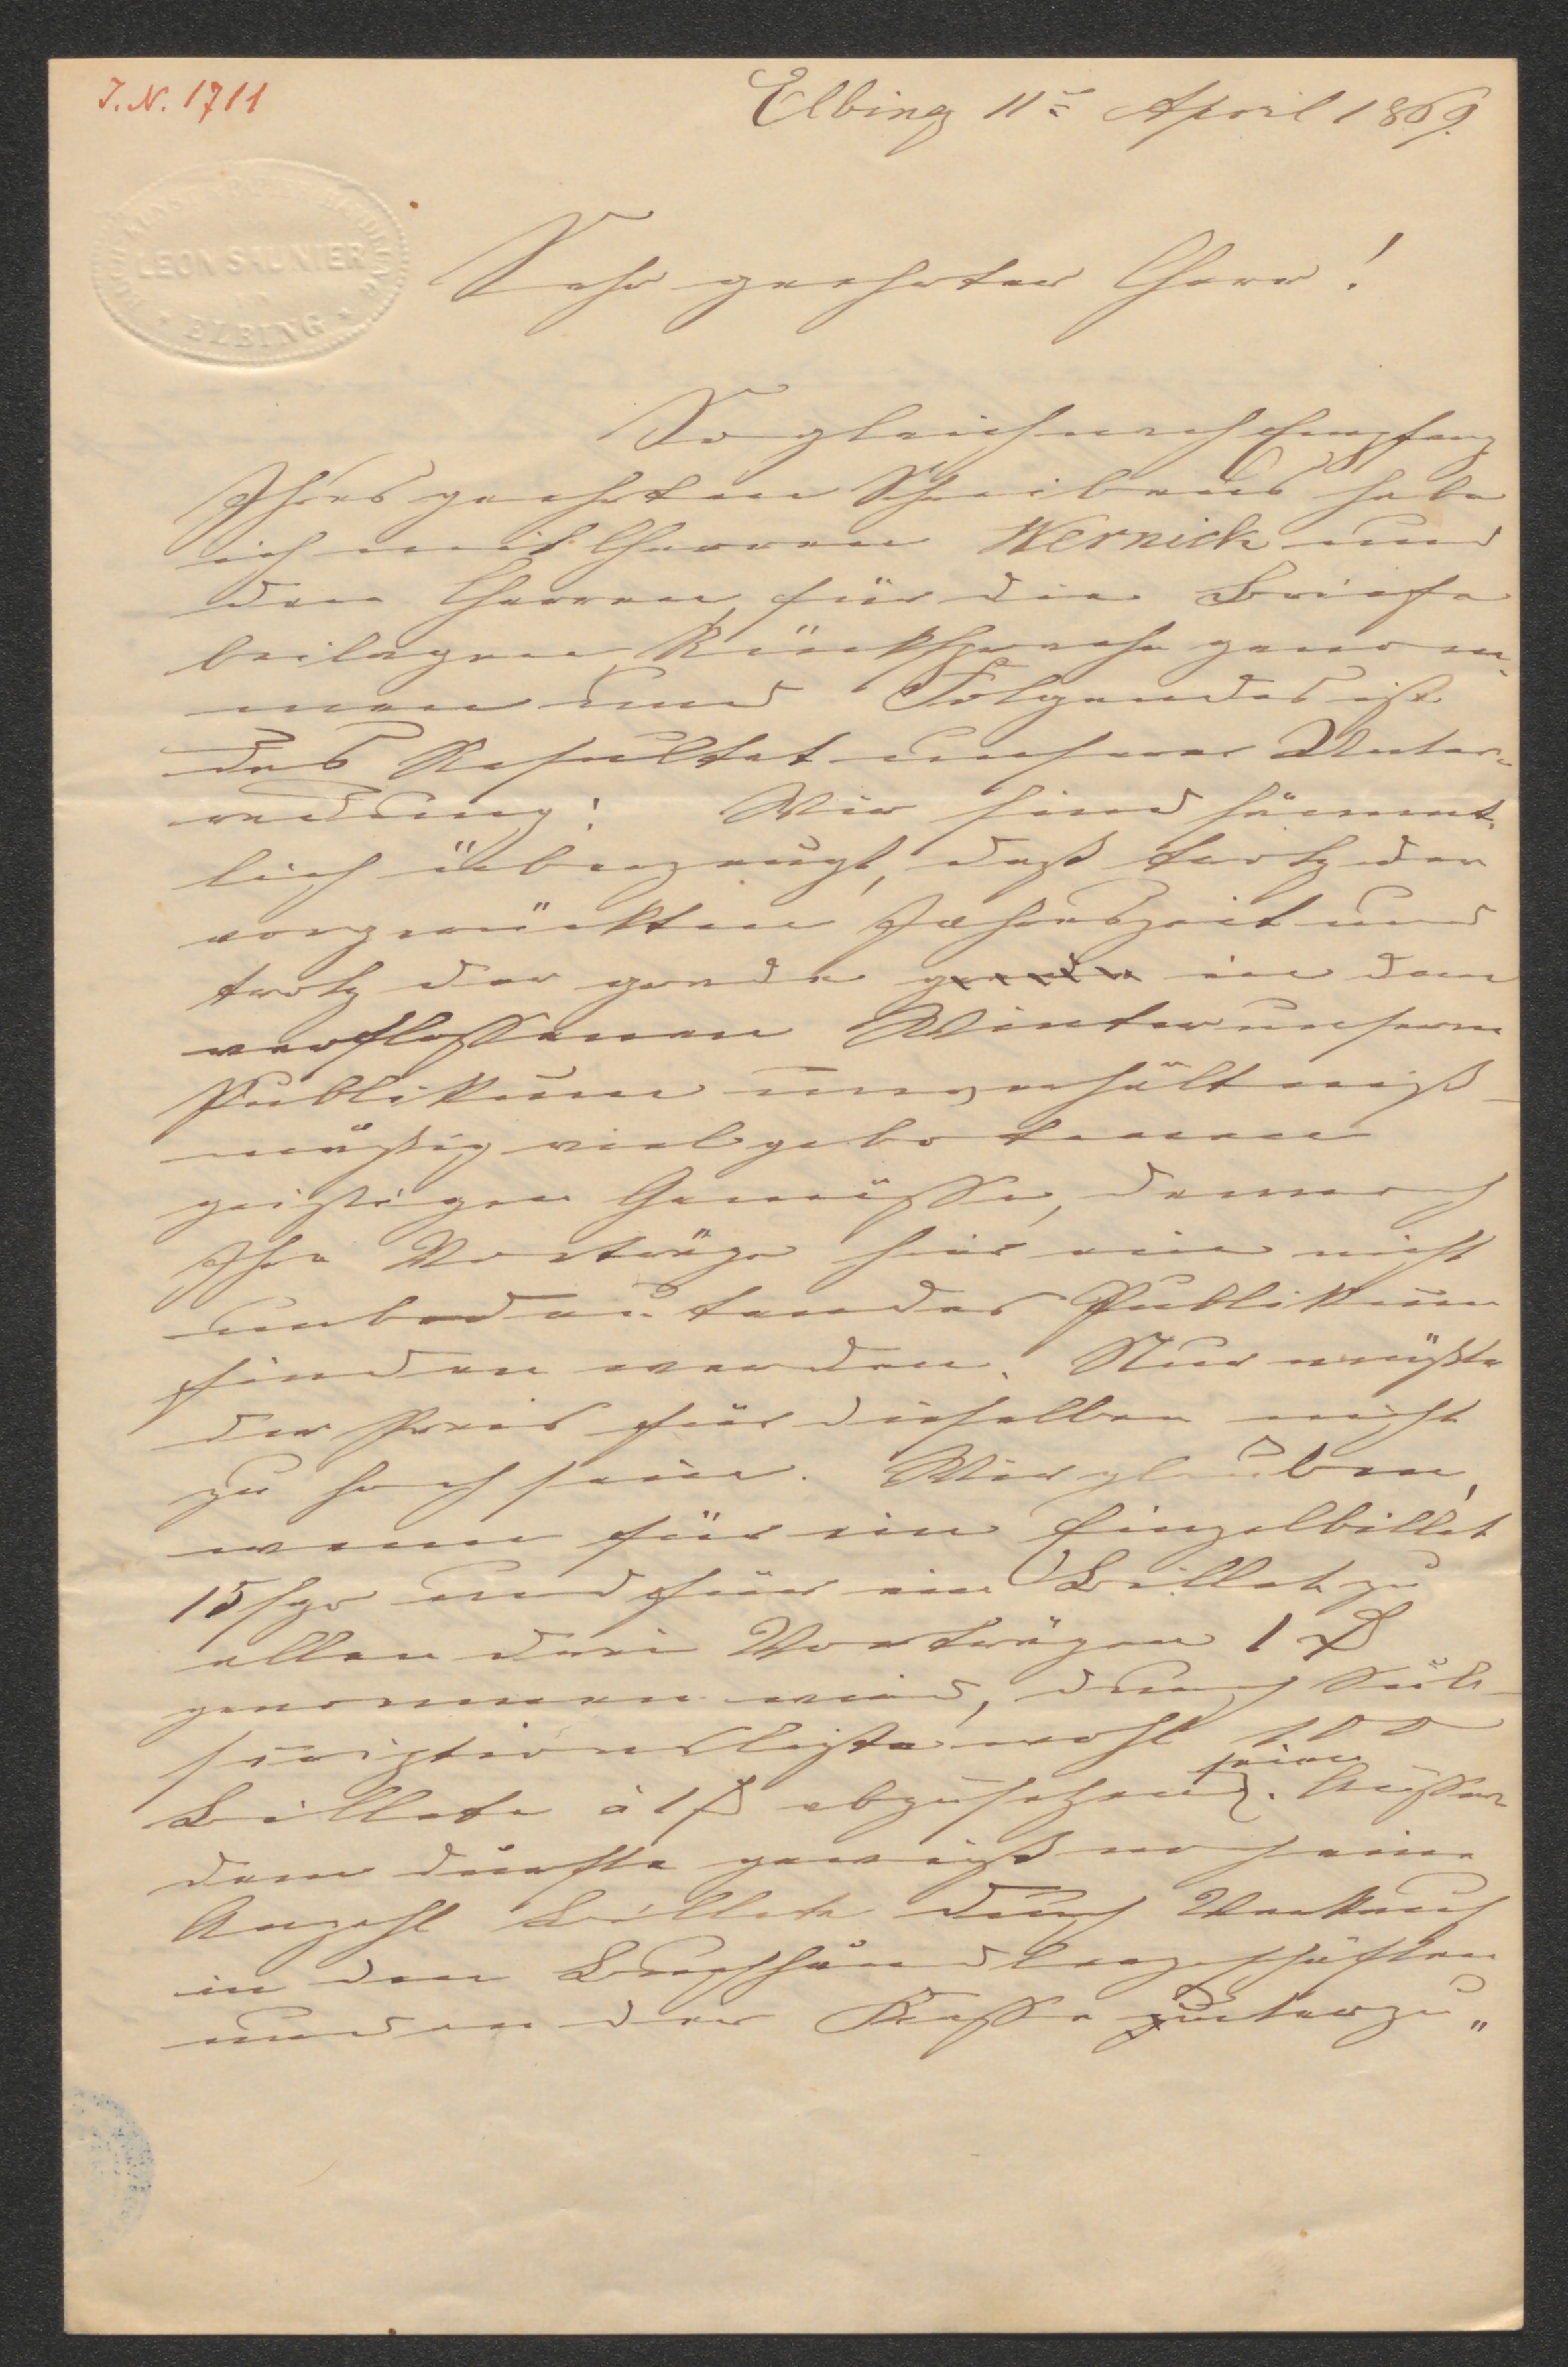 J. N. 1711
Elbing 11ᵗ April 1869.
LEON SAUNIER
in
ELBING
Sehr geehrter Herr!
Sogleich nach Empfang
Ihres geehrten Schreibens habe
ich mit Herren Wernick und
den Herren, für die Briefe
beilagen, Rücksprache genom-
men und Folgendes ist
das Resultat unserer Unter-
redung: Wir sind sämmt-
lich überzeugt, daß trotz der
vorgerückten Jahreszeit und
trotz der grade grade in dem
verflossenen Winter unserm
Publikum unverhältniß-
mäßig viel gebotenen
geistigen Genüsse, dennoch
Ihre Vorträge hier ein nicht
unbedeutendes Publikum
finden werden. Nur müßte
der Preis für dieselben nicht
zu hoch sein. Wir glauben,
wenn für ein Einzelbillet
15 sgr und für ein Billet zu
allen drei Vorträgen 1 ₰
genommen wird, durch Sub-
scriptionsliste wohl 100
Billete à 1 ₰ abzusetzen seien. Außer-
dem dürfte gewiß noch eine
Anzahl Billete durch Verkauf
in den Buchhändlergeschäften
und an der Kasse